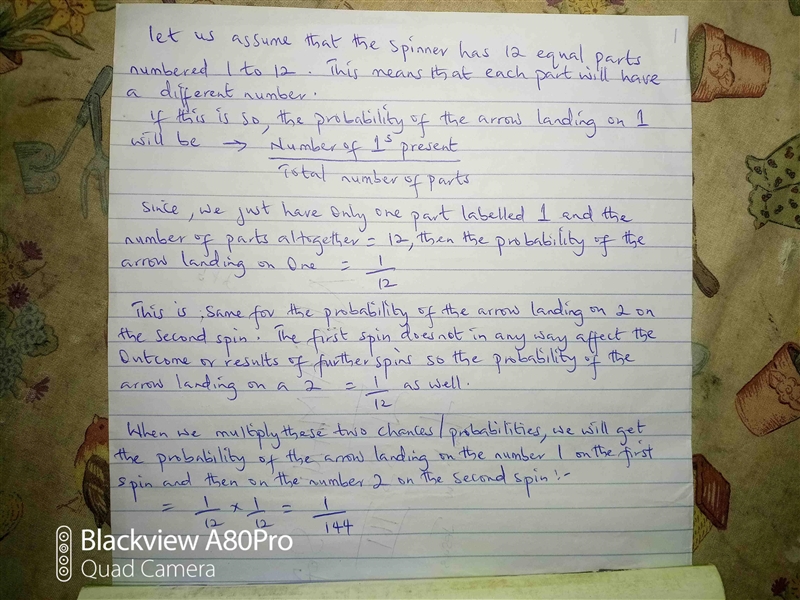 1
let us assume that the spinner has 12 equal parts
numbered 1 to 12. This means that each part will have
a different number.
if this is so, the probability of the arrow landing on 1
will be → Number of 1s present
Total number of parts
Since, we just have only one part labelled 1 and the
number of parts altogether = 12, then the probability of the
arrow landing on one = 1
12
This is same for the probability of the arrow landing on 2 on
the second spin. The first spin does not in any way affect the
Outcome or results of further spins so the probability of the
arrow landing on a 2 = 1 as well.
12
When we multiply these two chances/probabilities, we will get
the probability of the arrow landing on the number 1 on the first
spin and then on the number 2 on the second spin :-
= 1 × 1 = 1
12 12 144
Blackview A80Pro
Quad Camera